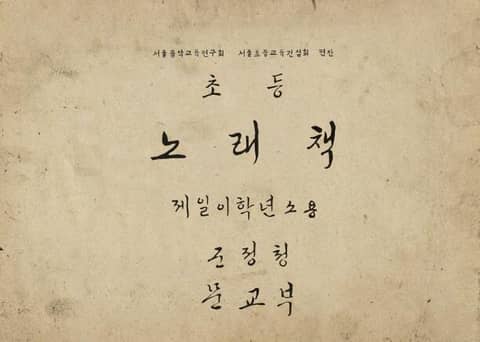 서울음악교육연구회 서울초등교육건설회 편찬
초등
노래책
제일이학년소용
군정청
문교부